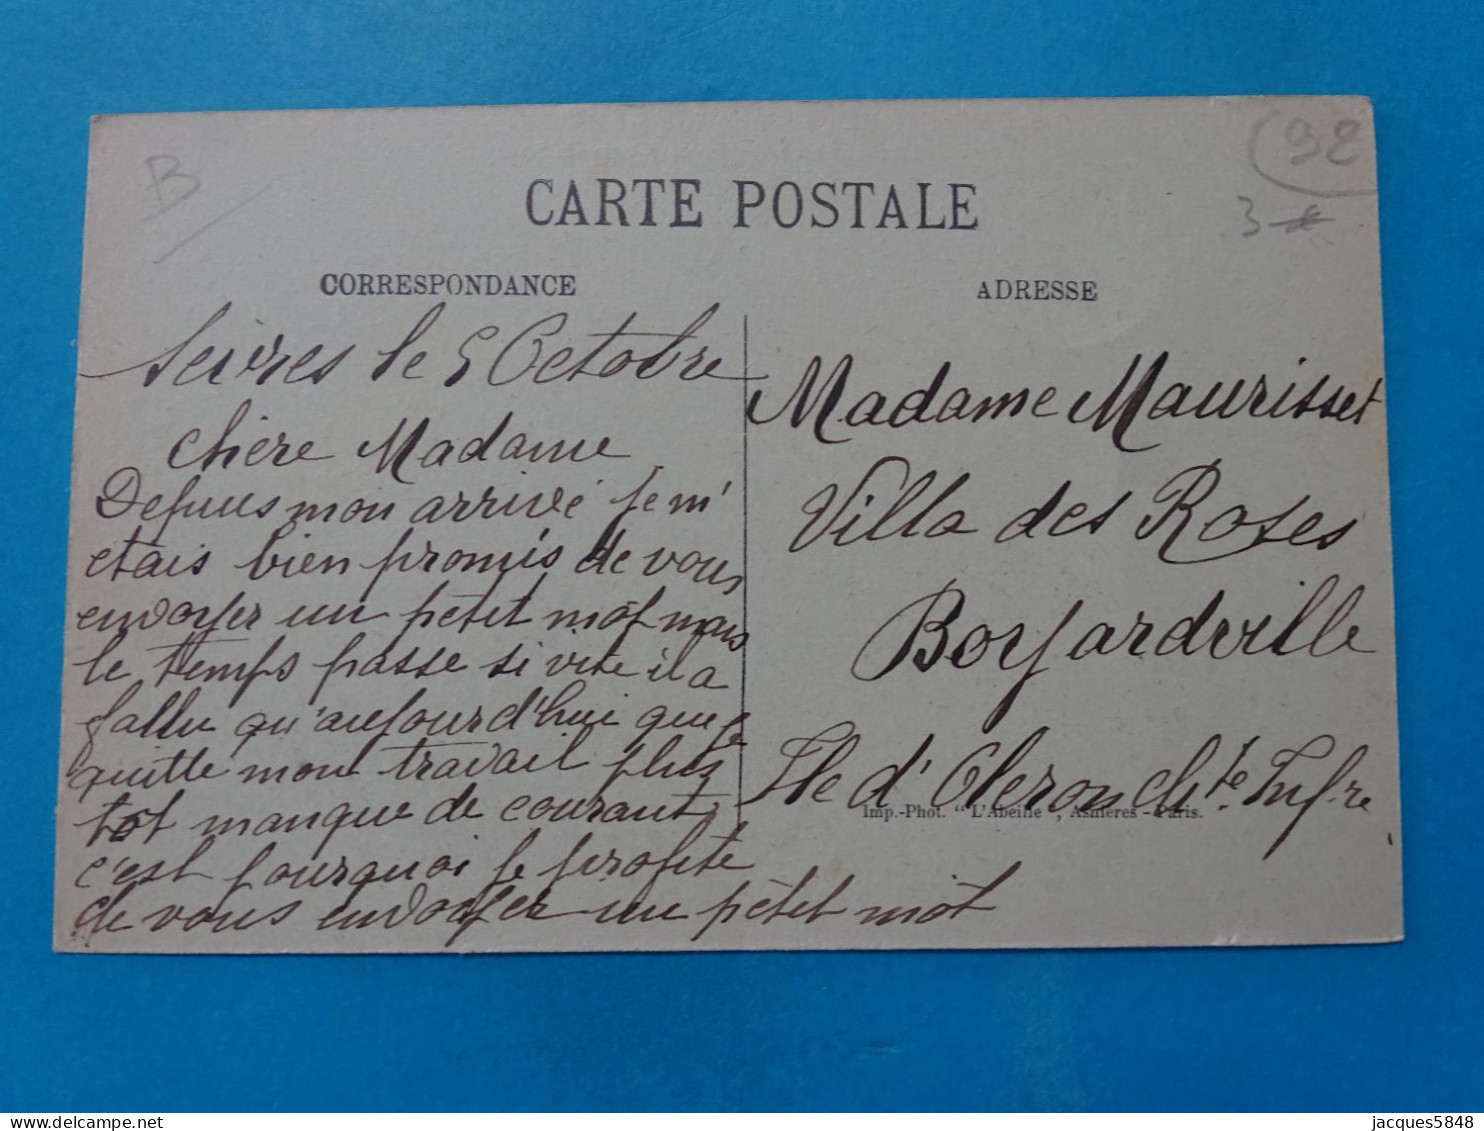 B
(92
3
CARTE POSTALE
CORRESPONDANCE
ADRESSE
Seivres le 5 Octobre
Chère Madame
Depuis mon arrivé je m'
etais bien promis de vous
envoyer un pètit mot mais
le temps passe si vite il a
fallu qu'aujourd'hui que je
quitte mon travail plus
tot manque de courant
c'est pourquoi je profite
de vous envoyer un pètit mot
Madame Maurisset
Villa des Roses
Boyardville
Ile d'Oleron Chte Infre
Imp.-Phot. "L'Abeille", Asnières - Paris.
jacques5848